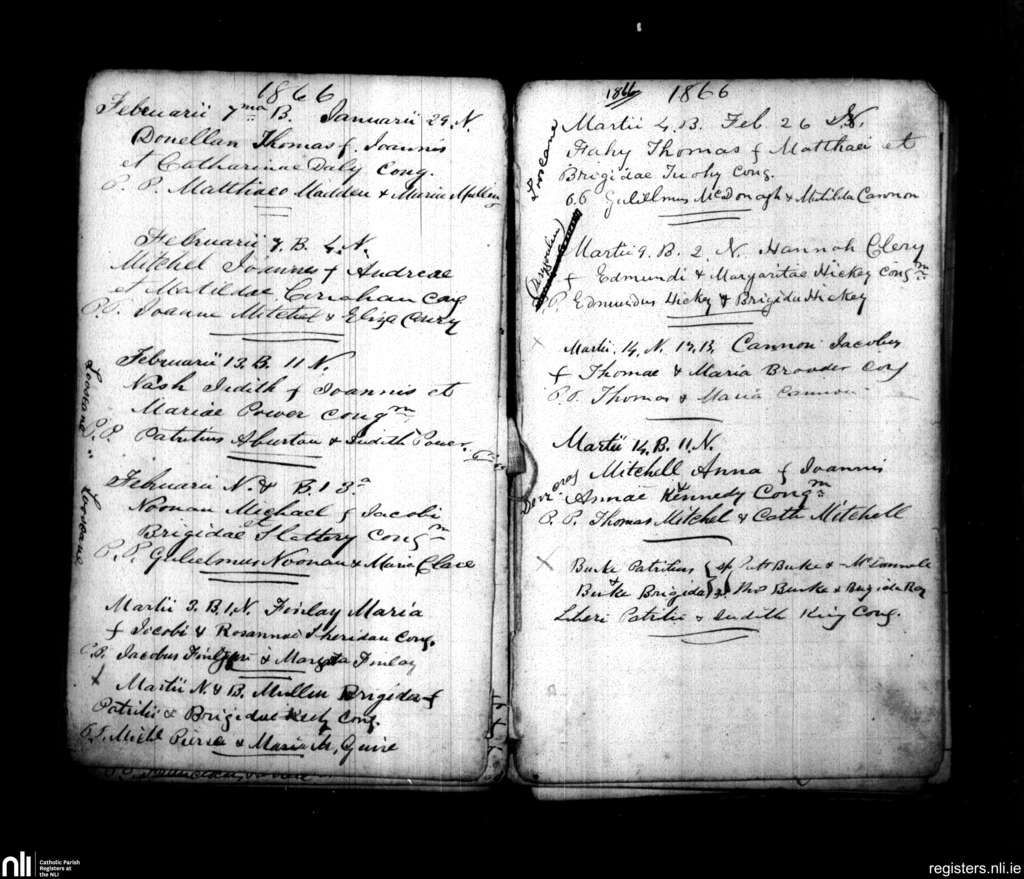 1866
Februarii 7ma B. Januarii 29. N.
Donellan Thomas f. Joannis
et Catharinae Daly Cong.
P. P. Matthaeo Madden & Maria Mullin
Februarii 7. B. 4. N.
Mitchel Joannes f Andreae
et Matildae Carahan Cong
P. P. Joanne Mitchel & Eliza
Februarii 13. B. 11 N.
Nash Judith f Joannis et
Mariae Power Congm
P. P. Patritius & Judith Power
Februarii N. & B. 13a
Noonan Michael f Jacobi
et
Brigidae Slattery Congm
P. P. Gulielmus Noonan & Maria Clare
Martii 3. B. 1. N. Finlay Maria
f Jacobi & Rosannae Sheridan Cong.
P. P. Jacobus & Margta Finlay
Martii N. & B. Mullen Brigida f
Patritii & Brigidae Cong.
P. P. Michl Pierce & Maria
1866 1866
Martii 4. B. Feb. 26 N.
Fahy Thomas f Matthaei et
Brigidae Tuohy Cong.
Gulielmus McDonagh & Matilda Cannon
Martii 9. B. 2. N. Hannah Clery
f Edmundi & Margaritae Hickey Congm
P. Edmundus Hickey & Brigida Hickey
Martii. 14. N. 17. B. Cannon Jacobus
f Thomae & Maria Broder Cong
P. P. Thomas & Maria Cannon
Martii 14. B. 11. N.
Mitchell Anna f Joannis
&
Annae Kennedy Congm
P. P. Thomas Mitchel & Cath Mitchell
Burke Patritius sp Patt Burke &
&
Burke Brigida Thos Burke & Brigida
Liberi Patritii & Judith King Cong.
nli
Catholic Parish
Registers at
the NLI
registers.nli.ie